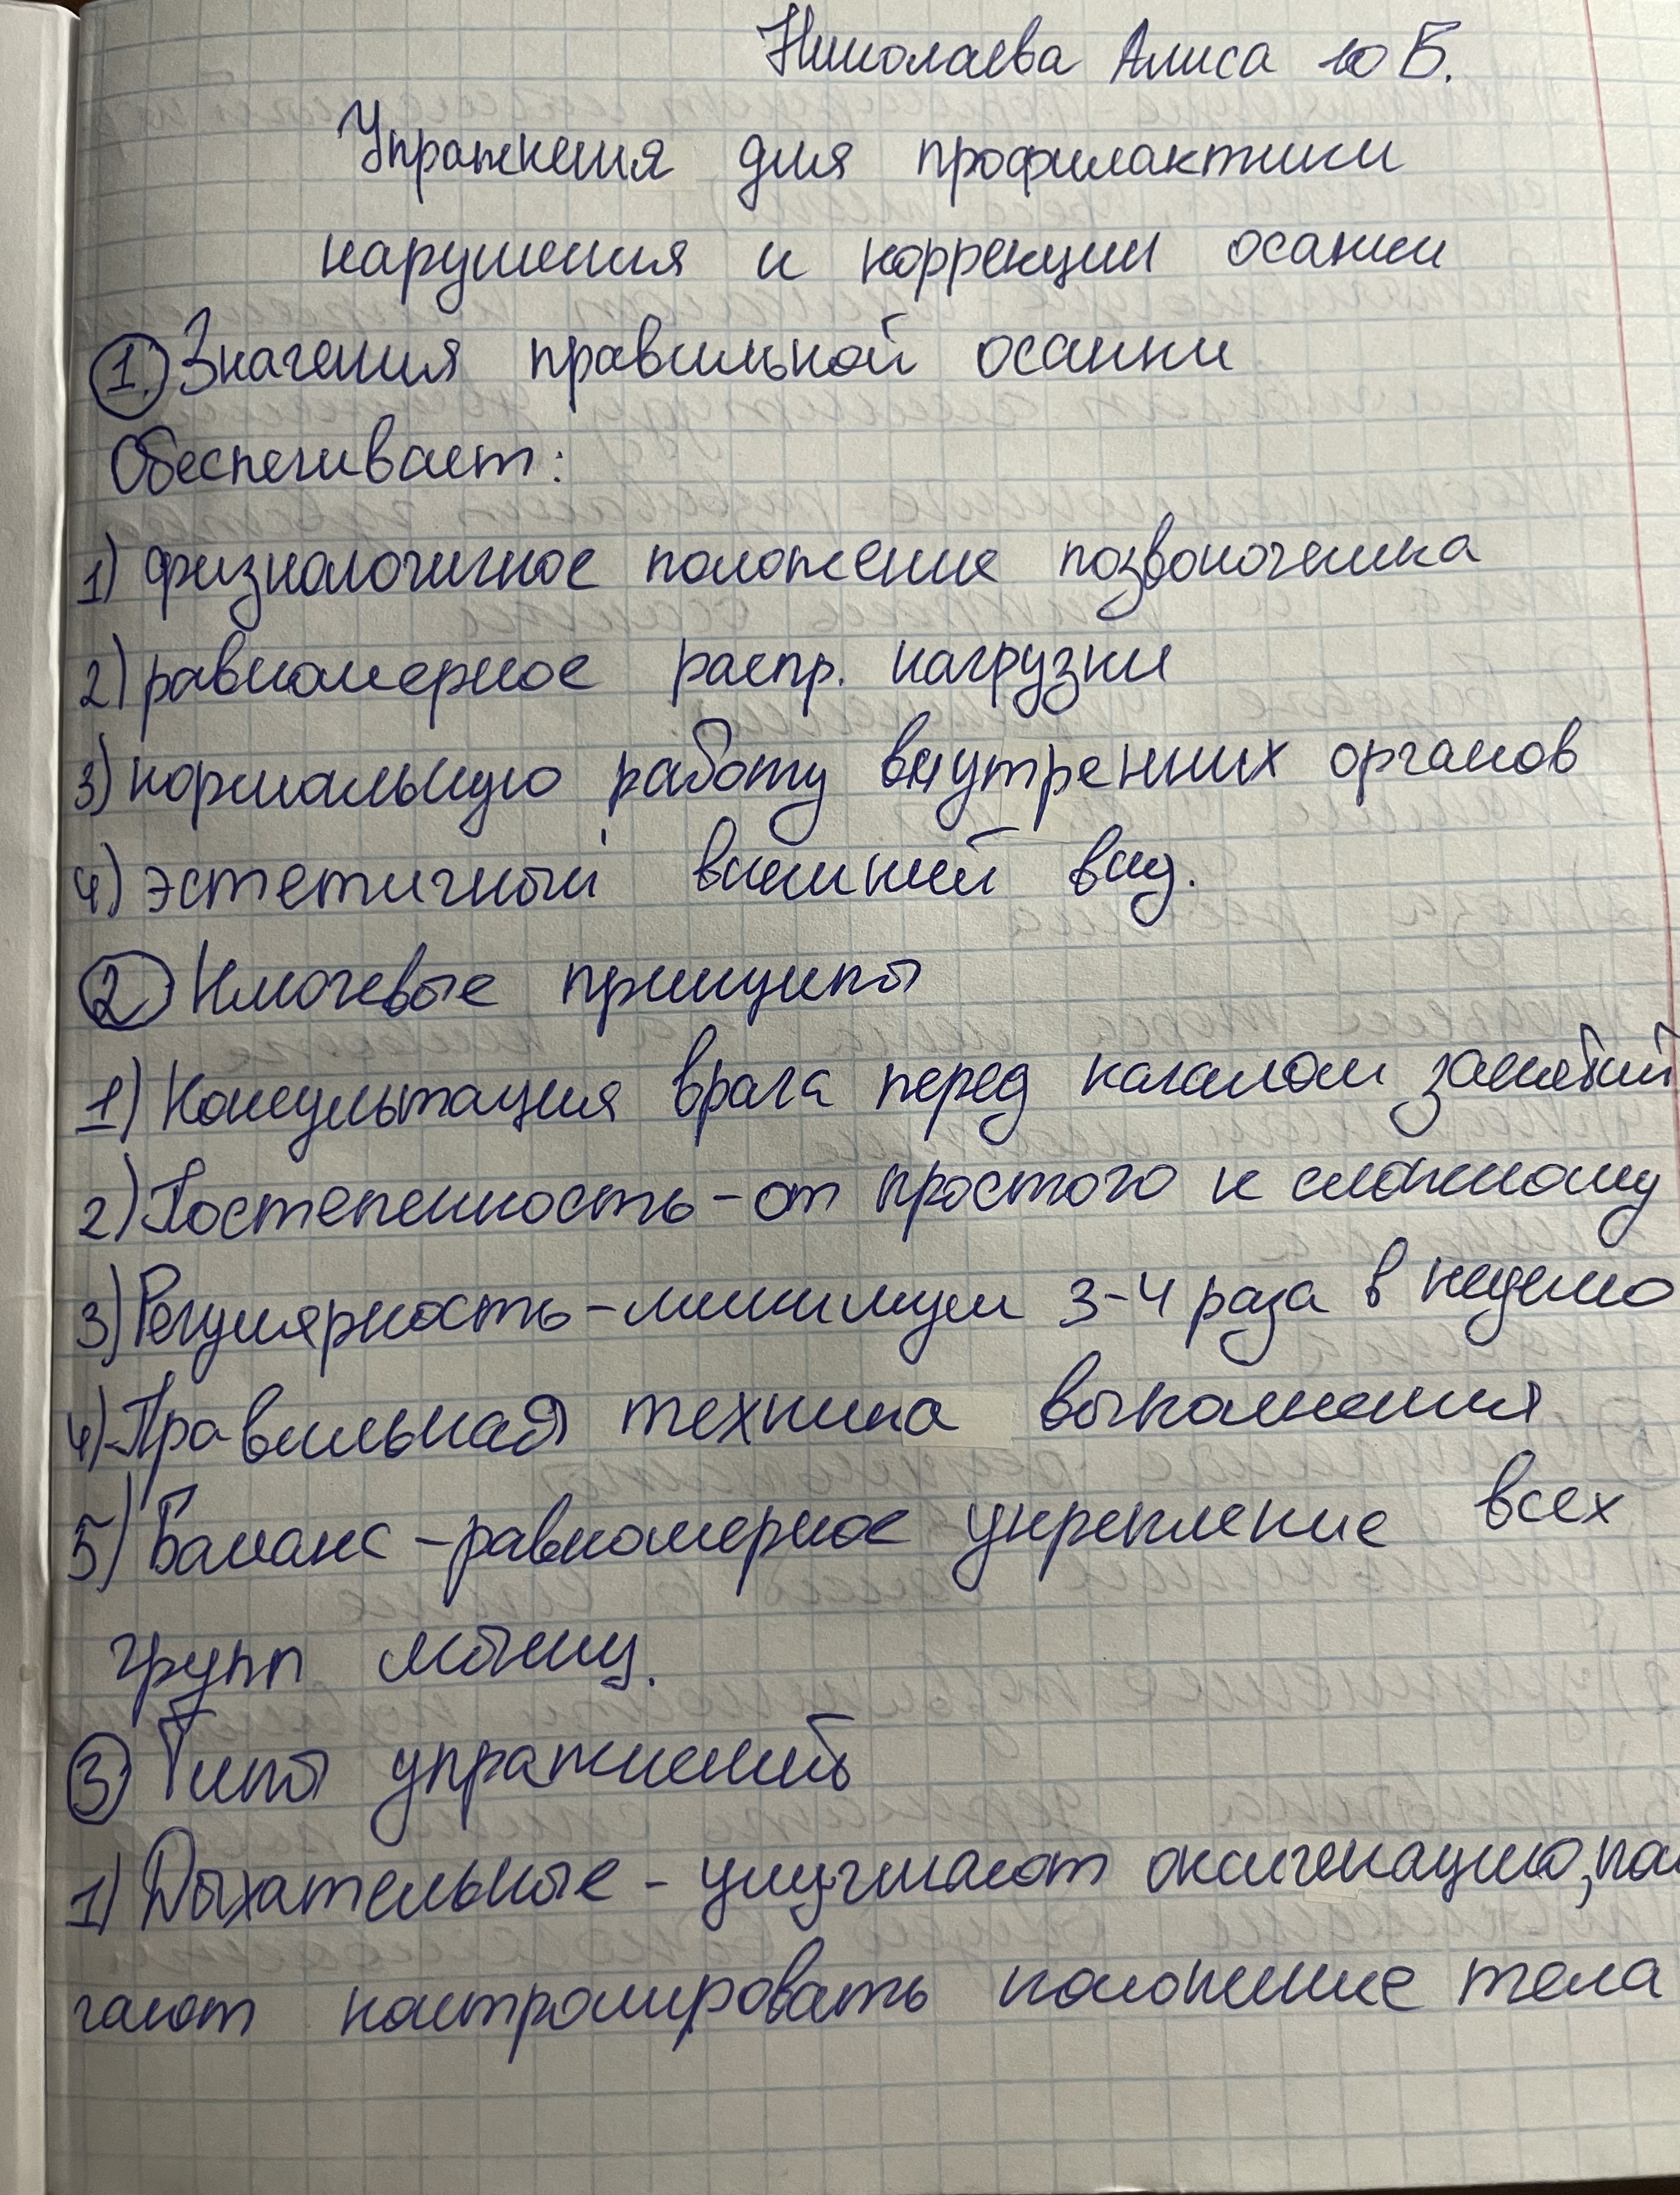 Николаева Алиса 10 Б.
Упражнения для профилактики
нарушения и коррекции осанки
1. Значения правильной осанки
Обеспечивает:
1) физиологичное положение позвоночника
2) равномерное распр. нагрузки
3) нормальную работу внутренних органов
4) эстетичный внешний вид.
2 Ключевые принципы
1) Консультация врача перед началом занятий
2) Постепенность - от простого к сложному
3) Регулярность - минимум 3-4 раза в неделю
4) Правильная техника выполнения
5) Баланс - равномерное укрепление всех
групп мышц.
3 Типы упражнений
1) Дыхательные - улучшают оксигенацию, пом
гают контролировать положение тела